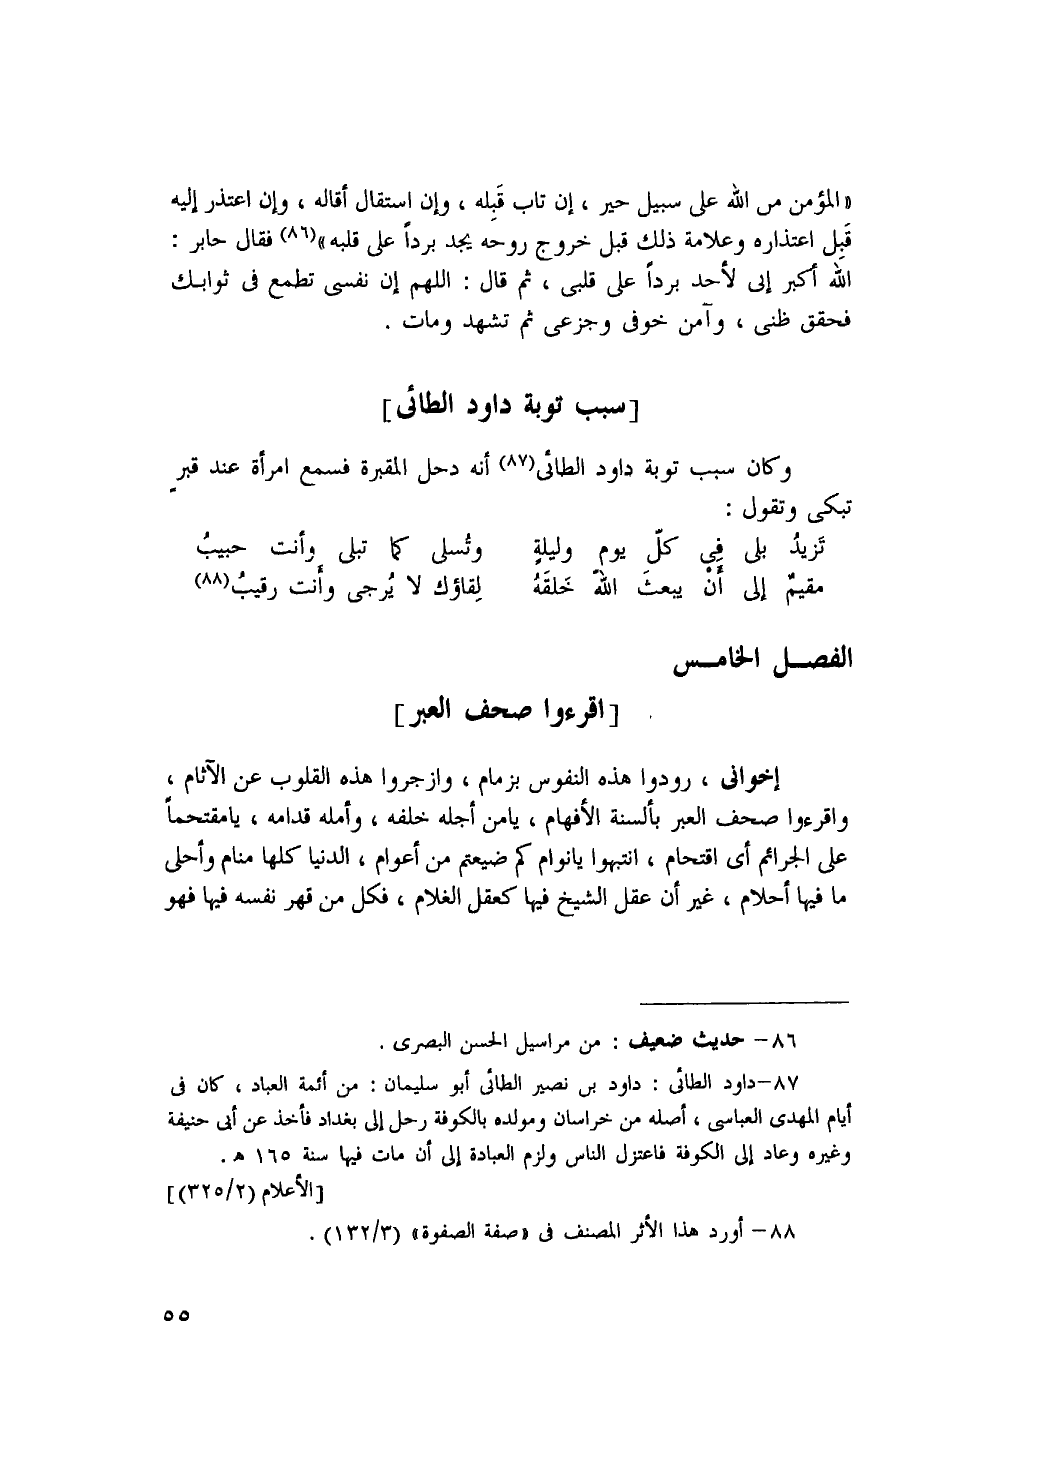 «المؤمن من الله على سبيل خير ، إن تاب قَبِله ، وإن استقال أقاله ، وإن اعتذر إليه
قَبِل اعتذاره وعلامة ذلك قبل خروج روحه يجد برداً على قلبه»(٨٦) فقال جابر :
الله أكبر إنى لأجد برداً على قلبى ، ثم قال : اللهم إن نفسى تطمع فى ثوابـك
فحقق ظنى ، وآمن خوفى وجزعى ثم تشهد ومات .
[سبب توبة داود الطائى]
وكان سبب توبة داود الطائى(٨٧) أنه دخل المقبرة فسمع امرأة عند قبرٍ
تبكى وتقول :
تَزيدُ بلى فِى كلّ يوم وليلةٍ وتُسلى كما تبلى وأنت حبيبُ
مقيمٌ إلى أَنْ يبعثَ اللهُ خَلقَهُ لِقاؤك لا يُرجى وأَنت رقيبُ(٨٨)
الفصــل الخامــس
[اقرءوا صحف العبر]
إخوانى ، رودوا هذه النفوس بزمام ، وازجروا هذه القلوب عن الآثام ،
واقرءوا صحف العبر بألسنة الأفهام ، يامن أجله خلفه ، وأمله قدامه ، يامقتحماً
على الجرائم أى اقتحام ، انتبهوا يانوام كم ضيعتم من أعوام ، الدنيا كلها منام وأحلى
ما فيها أحلام ، غير أن عقل الشيخ فيها كعقل الغلام ، فكل من قهر نفسه فيها فهو
٨٦- حديث ضعيف : من مراسيل الحسن البصرى .
٨٧-داود الطائى : داود بن نصير الطائى أبو سليمان : من أئمة العباد ، كان فى
أيام المهدى العباسى ، أصله من خراسان ومولده بالكوفة رحل إلى بغداد فأخذ عن أبى حنيفة
وغيره وعاد إلى الكوفة فاعتزل الناس ولزم العبادة إلى أن مات فيها سنة ١٦٥ ه .
[الأعلام (٣٢٥/٢)]
٨٨- أورد هذا الأثر المصنف فى «صفة الصفوة» (١٣٢/٣) .
٥٥